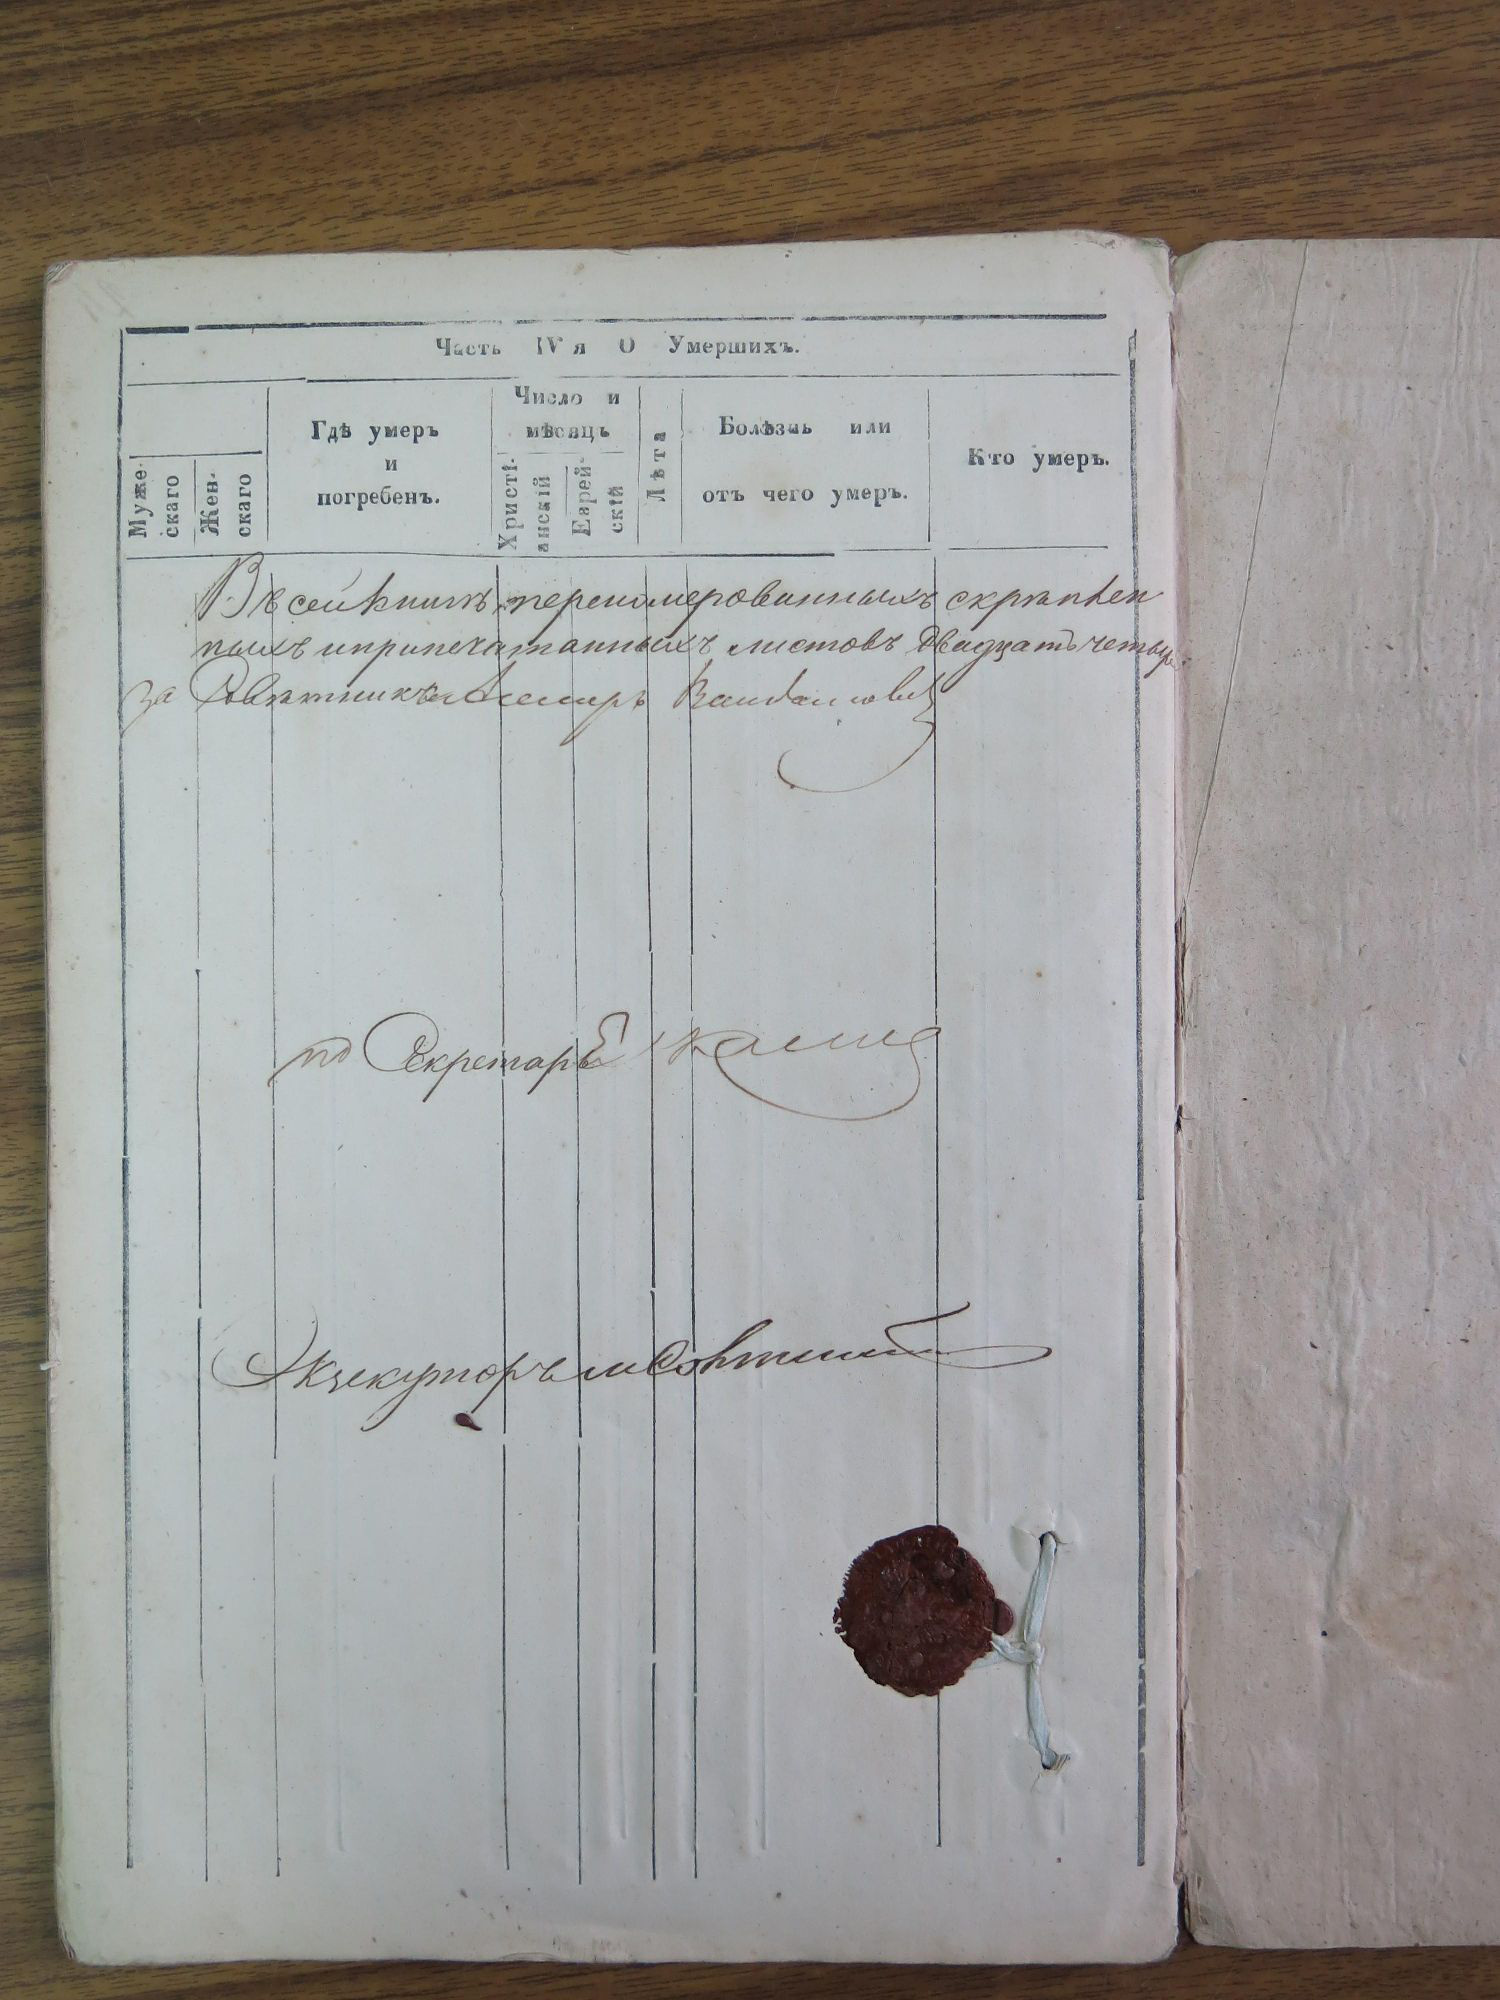 Часть IV я О Умершихъ.
Муже-
скаго
Жен-
скаго
Гдѣ умеръ
и
погребенъ.
Число и
мѣсяцъ
Христі-
анскій
Еврей-
скій
Лѣта
Болѣзнь или
отъ чего умеръ.
Кто умеръ.
Въ сей книгѣ перенумерованныхъ скрѣплен
ныхъ и припечатанныхъ листовъ двадцать четыре
за
Секретарь
Экзекуторъ